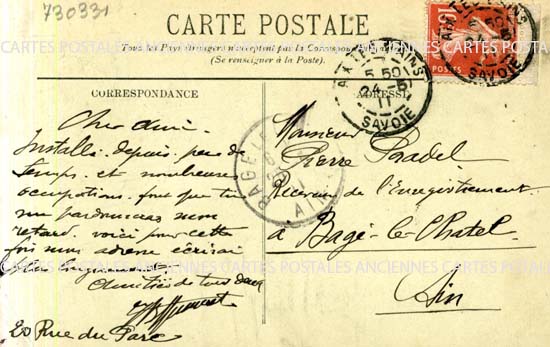 730331
CARTE POSTALE
Tous les Pays étrangers n'acceptent pas la Correspondance
(Se renseigner à la Poste).
CORRESPONDANCE
ADRESSE
AIX-LES-BAINS
5 50
24 -6
11
SAVOIE
10
SAVOIE
BAGÉ-LE-
AIN
Cher ami
Installé depuis peu de
temps et nombreuses
occupations font que tu
me pardonneras mon
retard. Voici pour cette
fois mon adresse écrirai
plus longuement
Amitiés de tous deux
20 Rue du Parc
Monsieur
Pierre Pradel
Receveur de l'Enregistrement
à Bagé-le-Chatel
Ain
CARTES POSTALES ANCIENNES CARTES POSTALES ANCIENNES CARTES POSTALES